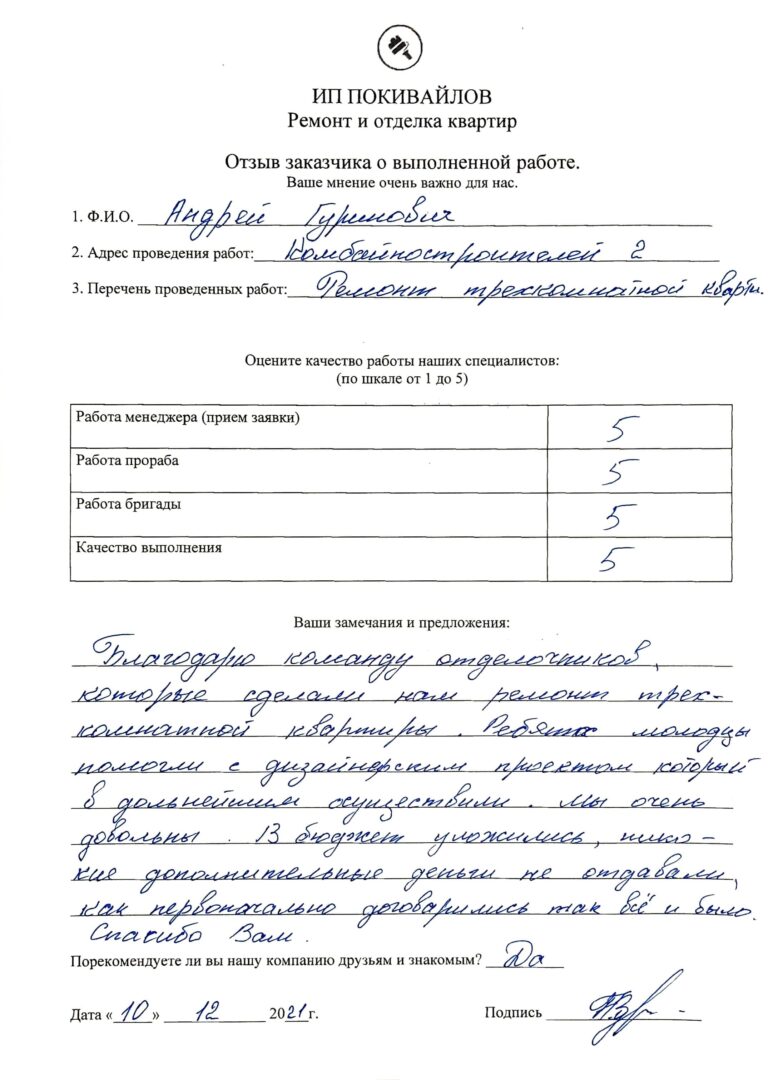 ИП ПОКИВАЙЛОВ
Ремонт и отделка квартир
Отзыв заказчика о выполненной работе.
Ваше мнение очень важно для нас.
1. Ф.И.О. Андрей Гуринович
2. Адрес проведения работ: Комбайностроителей 2
3. Перечень проведенных работ: Ремонт трехкомнатной кварти.
Оцените качество работы наших специалистов:
(по шкале от 1 до 5)
Работа менеджера (прием заявки) 5
Работа прораба 5
Работа бригады 5
Качество выполнения 5
Ваши замечания и предложения:
Благодарю команду отделочников,
которые сделали нам ремонт трех-
комнатной квартиры. Ребята молодцы
помогли с дизайнерским проектом который
в дальнейшем осуществили. Мы очень
довольны. В бюджет уложились, ника-
кие дополнительные деньги не отдавали,
как первоначально договарились так всё и было.
Спасибо Вам.
Порекомендуете ли вы нашу компанию друзьям и знакомым? Да
Дата «10» 12 2021г. Подпись